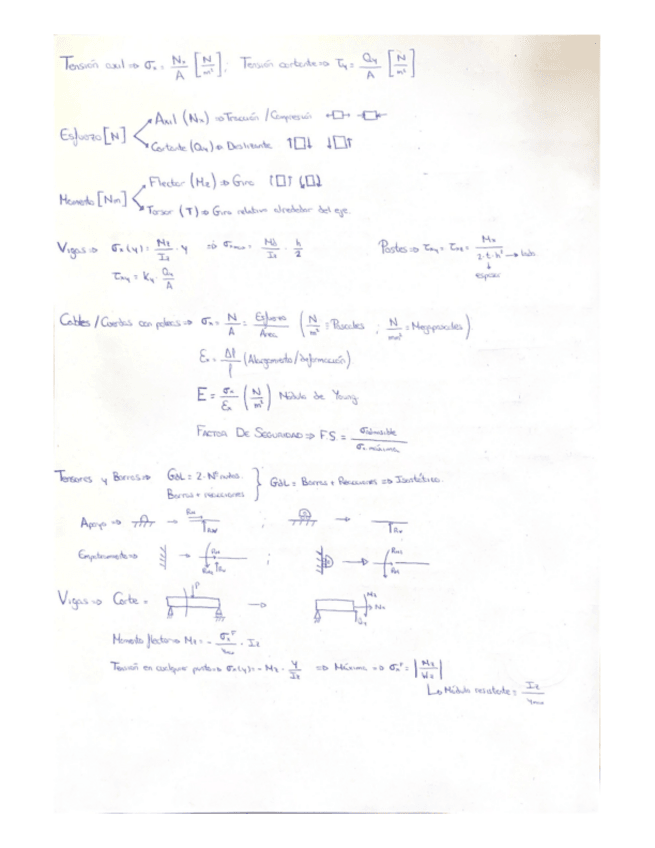 Tensión axil ⇒ σx = Nx/A [N/m²]; Tensión cortante ⇒ τy = Qy/A [N/m²]
Esfuerzo [N]
Axil (Nx) ⇒ Tracción / Compresión
Cortante (Qy) ⇒ Deslizante
Momento [Nm]
Flector (Mz) ⇒ Giro
Torsor (T) ⇒ Giro relativo alrededor del eje
Vigas ⇒ σx(y) = Mz/Iz · y ⇒ σxmax = Mz/Iz · h/2
τxy = Ky · Qy/A
Postes ⇒ = Mx/2·t·h² → lado
espesor
Cables / Cuerdas con poleas ⇒ σx = N/A = Esfuerzo/Área (N/m² = Pascales ; N/mm² = Megapascales)
Ex = Δl/l (Alargamiento/deformación)
E = σx/Ex (N/m²) Módulo de Young
FACTOR DE SEGURIDAD ⇒ F.S. = σadmisible/σx máxima
Tensores y Barras ⇒ GdL = 2·Nº nudos.
Barras + reacciones
GdL = Barras + Reacciones ⇒ Isostático.
Apoyo ⇒
Empotramiento ⇒
Vigas ⇒ Corte =
P
Mz
Nx
Qy
Momento flector ⇒ Mz = - · Iz
Tensión en cualquier punto ⇒ σx(y) = - Mz · y/Iz ⇒ Máxima ⇒ = |Mz/Wz|
Módulo resistente = Iz/ymax